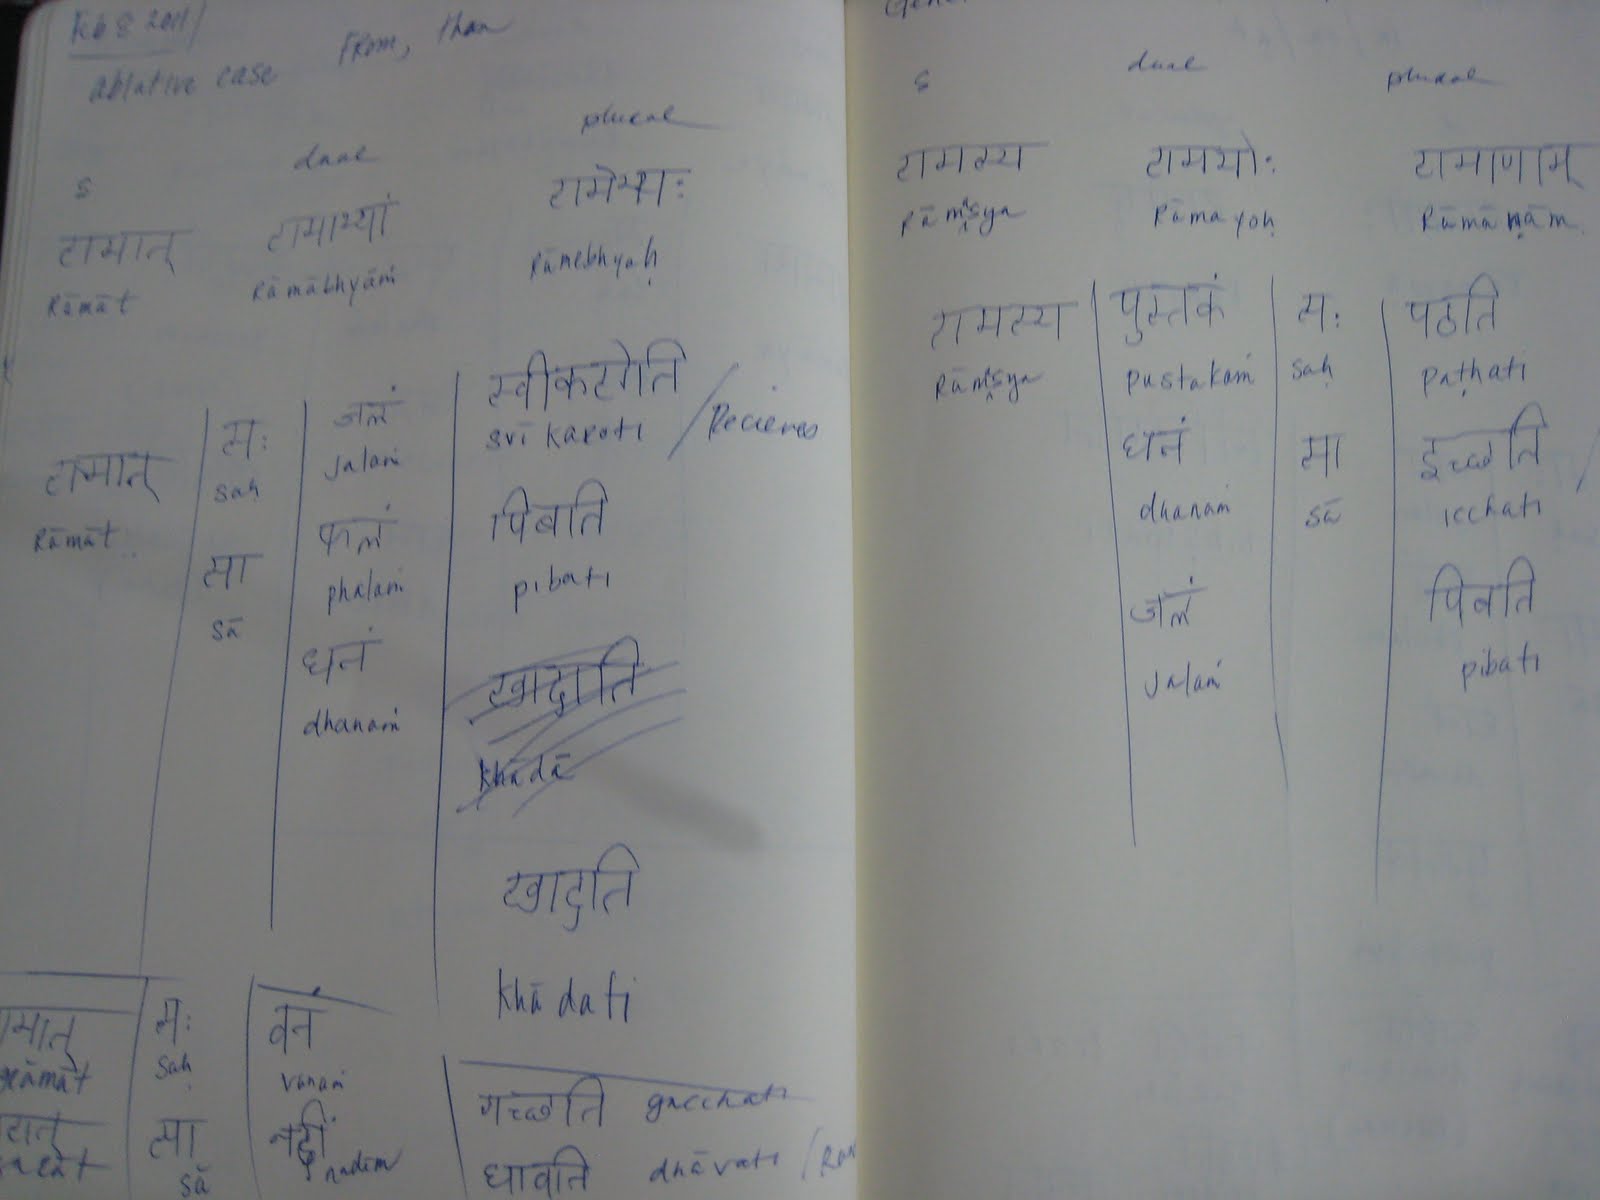 Feb 8 2011
ablative case From, than
s dual plural
रामात् रामाभ्यां रामेभ्यः
Rāmāt Rāmābhyāṁ Rāmebhyaḥ
रामात् सः जलं स्वीकरोति
Rāmāt saḥ jalaṁ svīkaroti / Recieves
सा फलं पिबति
sā phalaṁ pibati
धनं
dhanaṁ
खादाति
khādā
खादति
khādati
सः वनं
saḥ vanaṁ
गच्छति gacchati
सा नदीं
sā nadīm
धावति dhāvati
s dual plural
रामस्य रामयोः रामाणाम्
Rāmasya Rāmayoḥ Rāmāṇām
रामस्य पुस्तकं सः पठति
Rāmasya pustakaṁ saḥ paṭhati
धनं सा इच्छति
dhanaṁ sā icchati
जलं पिबति
jalaṁ pibati